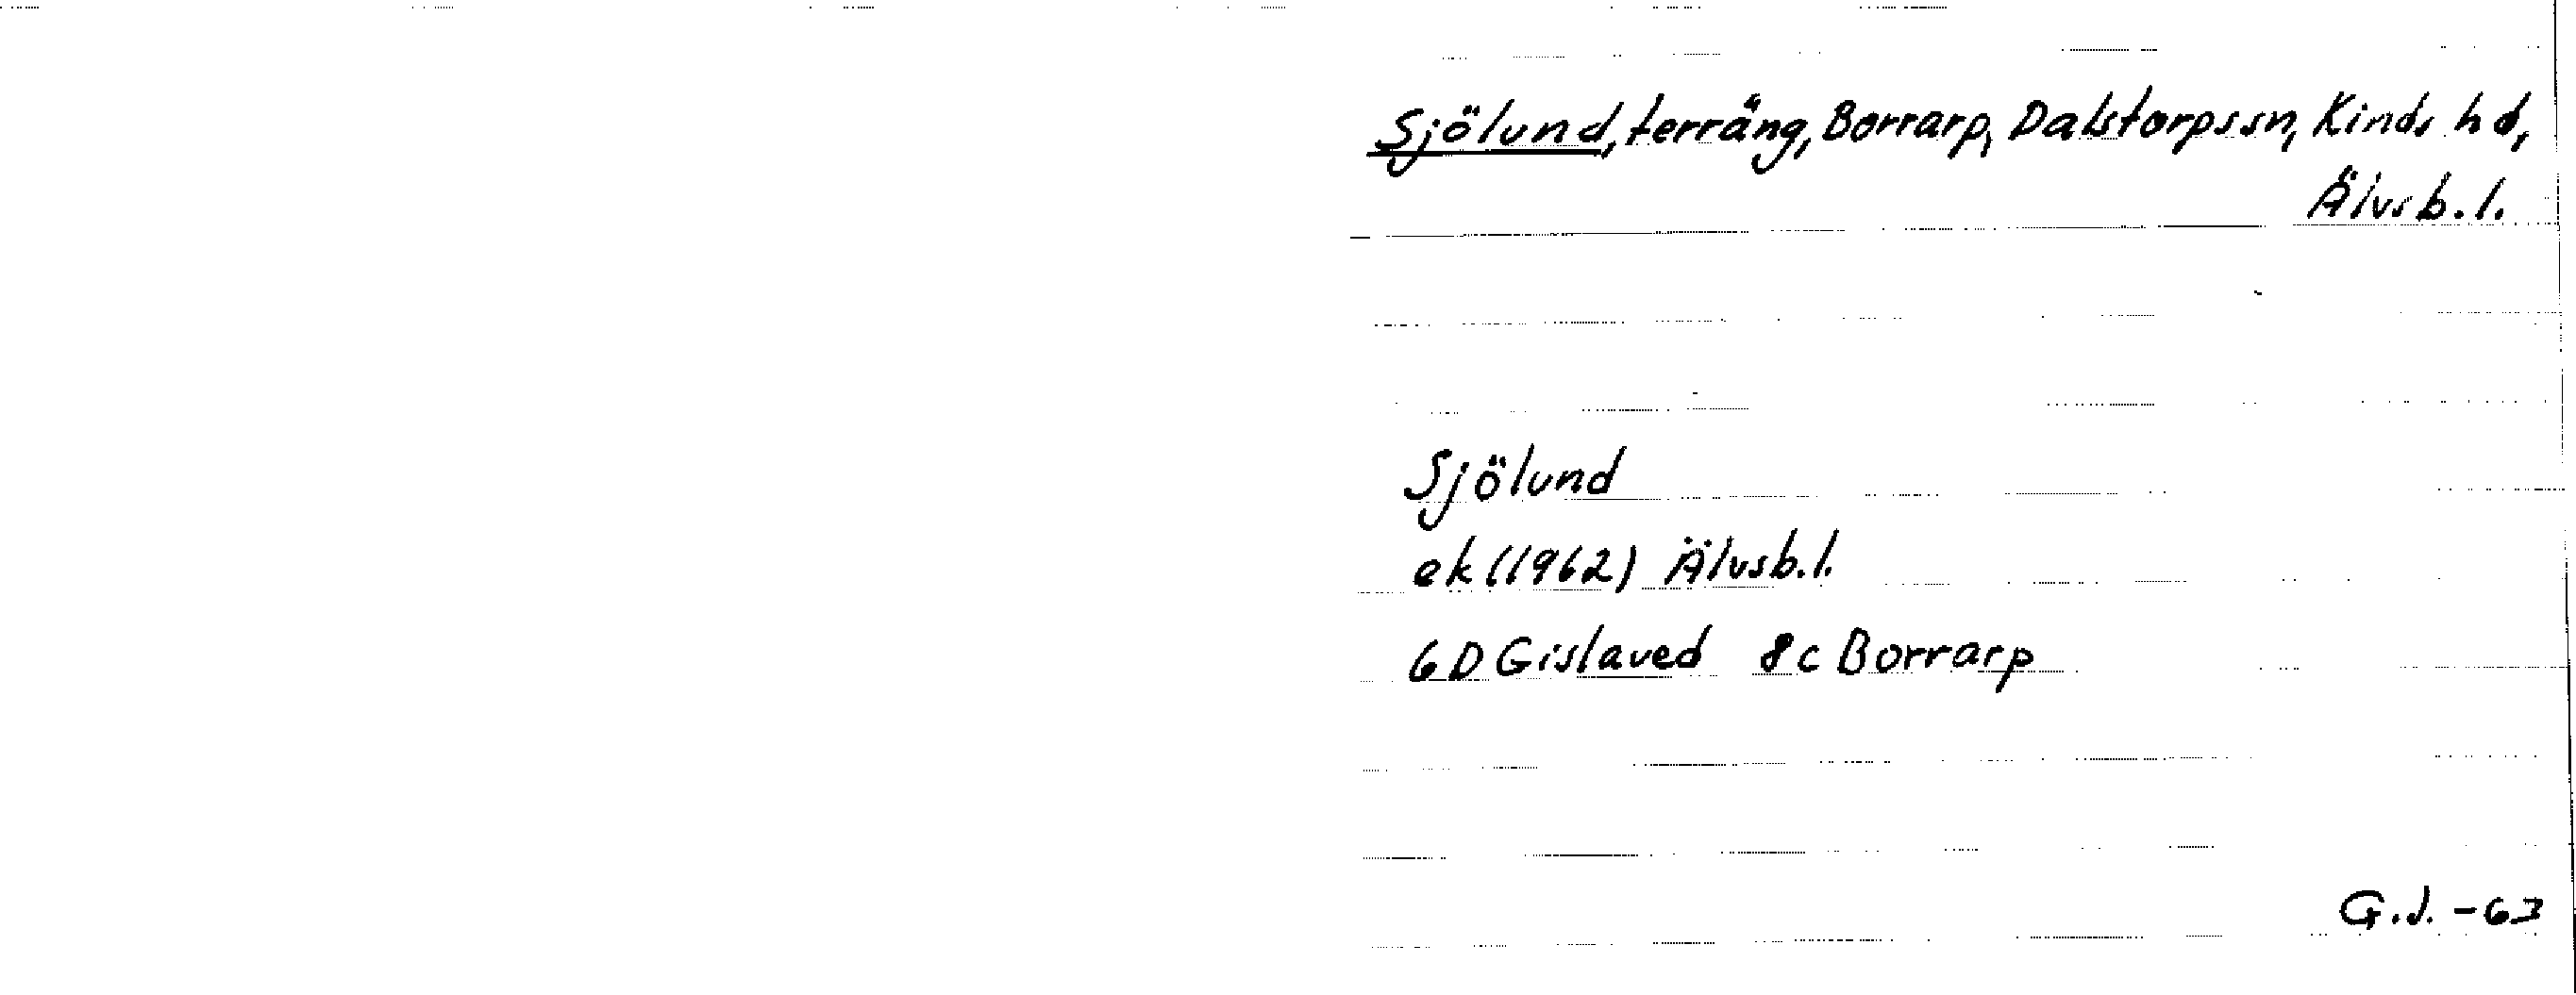 Sjölund, terräng, Borrarp, Dalstorps sn, Kinds hd,
Älvsb.l.
Sjölund
ek (1962) Älvsb.l.
6D Gislaved 8c Borrarp
G.J. -63